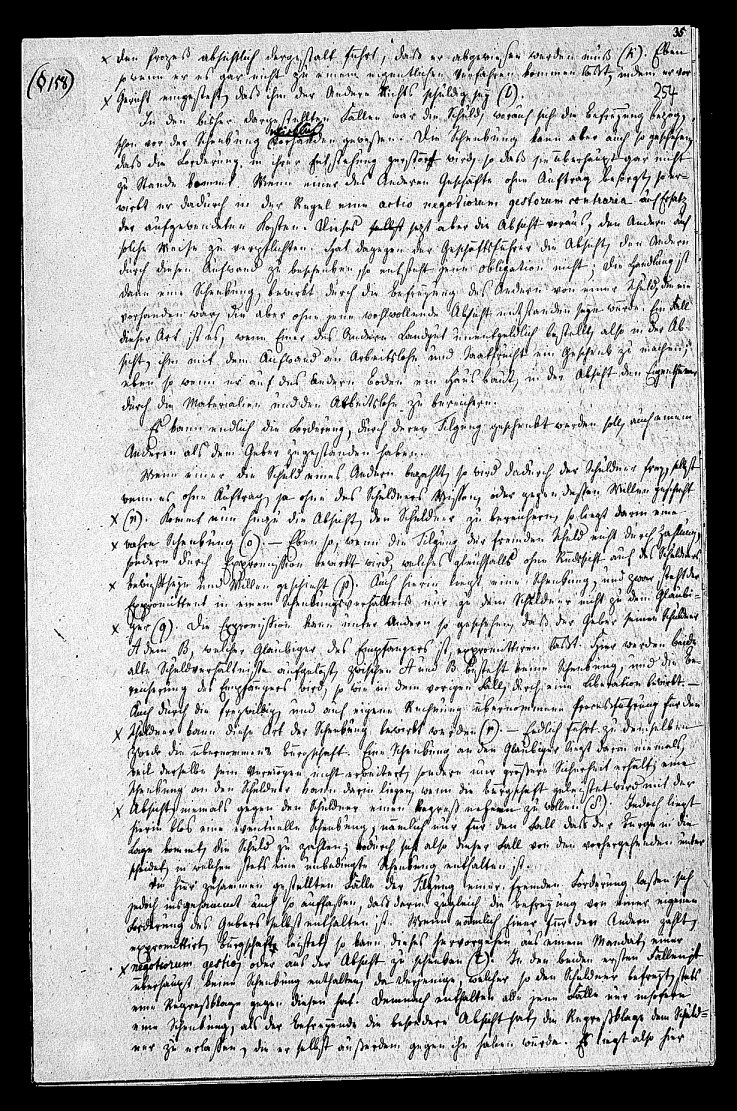 35
(§ 158)
× den Prozeß absichtlich dergestalt führt, daß er abgewiesen werden muß (k). Eben
so wenn er es gar nicht zu einem eigentlichen Verfahren kommen läßt, indem er vor
× Gericht eingesteht, daß ihm der Andere Nichts schuldig sey (l).
254
In den bisher dargestellten Fällen war die Schuld, worauf sich die Befreyung bezog,
schon vor der Schenkung wirklich vorhanden gewesen. Die Schenkung kann aber auch so geschehen,
daß die Forderung in ihrer Entstehung zerstört wird, so daß sie überhaupt gar nicht
zu Stande kommt. Wenn einer des Anderen Geschäfte ohne Auftrag besorgt, so er-
wirbt er dadurch in der Regel eine actio negotiorum gestorum contraria auf Ersatz
der aufgewendeten Kosten. Dieses setzt aber die Absicht voraus, den Andern auf
solche Weise zu verpflichten. Hat dagegen der Geschäftsführer die Absicht, den Andern
durch diesen Aufwand zu beschenken, so entsteht jene Obligation nicht; die Handlung ist
dann eine Schenkung, bewirkt durch die Befreyung des Andern von einer Schuld, die nie
vorhanden war, die aber ohne jene wohlwollende Absicht entstanden seyn würde. Ein Fall
dieser Art ist es, wenn Einer des Andern Landgut unentgeldlich bestellt, also in der Ab-
sicht, ihm mit dem Aufwand an Arbeitslohn und Saatfrucht ein Geschenk zu machen;
eben so wenn er auf des Andern Boden ein Haus baut, in der Absicht den Eigenthümer
durch die Materialien und den Arbeitslohn zu bereichern.
Es kann endlich die Forderung, durch deren Tilgung geschenkt werden soll, auch einem
Anderen als dem Geber zugestanden haben.
Wenn einer die Schuld eines Andern bezahlt, so wird dadurch der Schuldner frey, selbst
wenn es ohne Auftrag, ja ohne des Schuldners Wissen, oder gegen dessen Willen geschieht
× (n). Kommt nun hinzu die Absicht, den Schuldner zu bereichern, so liegt darin eine
× wahre Schenkung (o). — Eben so, wenn die Tilgung der fremden Schuld nicht durch Zahlung,
sondern durch Expromission bewirkt wird, welches gleichfalls ohne Rücksicht auf des Schuldners
× Bewußtseyn und Willen geschieht (p). Auch hierin liegt eine Schenkung, und zwar steht der
Expromittent in einem Schenkungsverhältniß nur zu dem Schuldner nicht zu dem Gläubi-
× ger (q). Die Expromission kann unter Andern so geschehen, daß der Geber seinen Schuldner
A dem B, welcher Gläubiger des Empfängers ist, expromittiren läßt. Hier werden beide
alte Schuldverhältnisse aufgelöst, zwischen A und B besteht keine Schenkung, und die Be-
reicherung des Empfängers wird, so wie in dem vorigen Fall, durch eine Liberation bewirkt. —
Auch durch die freywillig und auf eigene Rechnung übernommene Prozeßführung für den
× Schuldner kann diese Art der Schenkung bewirkt werden (r). — Endlich führt zu demselben
Zweck die übernommene Bürgschaft. Eine Schenkung an den Gläubiger liegt darin niemals,
weil derselbe sein Vermögen nicht erweitert, sondern nur größere Sicherheit erhält; eine
Schenkung an den Schuldner kann darin liegen, wenn die Bürgschaft geleistet wird mit der
× Absicht, niemals gegen den Schuldner einen Regreß nehmen zu wollen (s). Jedoch liegt
hierin blos eine eventuelle Schenkung, nämlich nur für den Fall daß der Bürge in die
Lage kommt, die Schuld zu zahlen; wodurch sich also dieser Fall von den vorhergehenden unter-
scheidet, in welchen stets eine unbedingte Schenkung enthalten ist.
Die hier zusammen gestellten Fälle der Tilgung einer fremden Forderung lassen sich
jedoch insgesammt auch so auffassen, daß darin zugleich die Befreyung von einer eigenen
Forderung des Gebers selbst enthalten ist. Wenn nämlich Einer für den Andern zahlt,
expromittirt, Bürgschaft leistet, so kann dieses hervorgehen aus einem Mandat, einer
× negotiorum gestio, oder aus der Absicht zu schenken (t). In den beiden ersten Fällen ist
überhaupt keine Schenkung enthalten, da derjenige, welcher so den Schuldner befreyt, stets
eine Regreßklage gegen diesen hat. Demnach enthalten alle jene Fälle nur insofern
eine Schenkung, als der Befreyende die besondere Absicht hat, die Regreßklage dem Schuld-
ner zu erlassen, die er selbst außerdem gegen ihn haben würde. Es liegt also hier